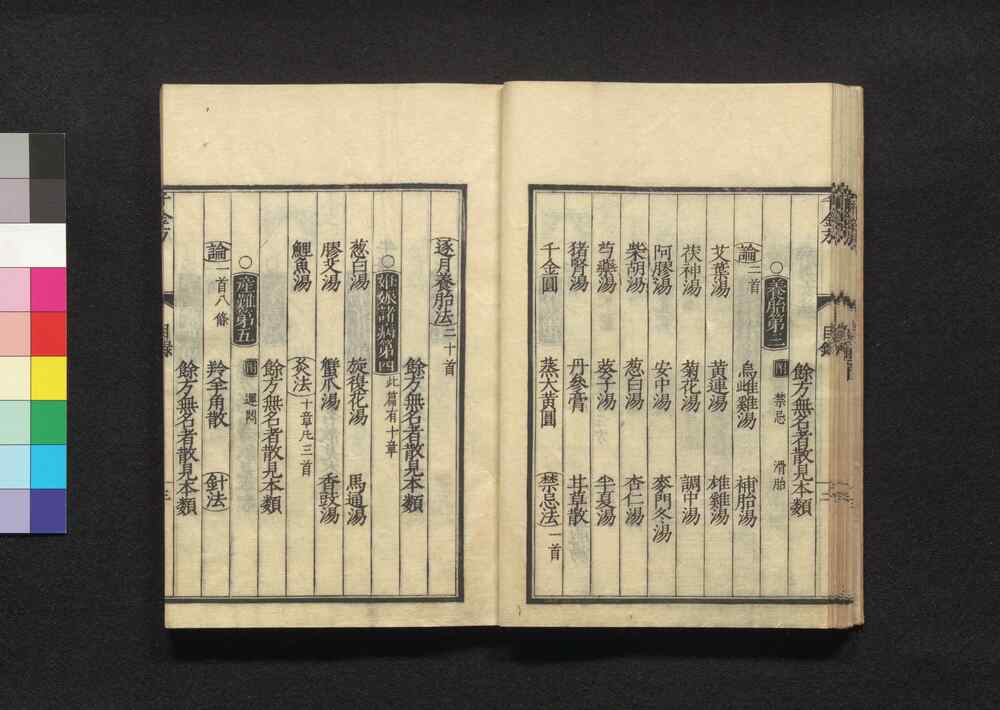 餘方無名者散見本類
○養胎第三 附 禁忌 滑胎
論二首 烏雌雞湯 補胎湯
艾葉湯 黃連湯 雄雞湯
茯神湯 菊花湯 調中湯
阿膠湯 安中湯 麥門冬湯
柴胡湯 葱白湯 杏仁湯
芎藭湯 葵子湯 半夏湯
猪腎湯 丹參膏 甘草散
千金圓 蒸大黃圓 禁忌法一首
逐月養胎法二十首
餘方無名者散見本類
○妊娠諸病第四 此篇有十章
葱白湯 旋復花湯 馬通湯
膠艾湯 蟹爪湯 香豉湯
鯉魚湯 灸法十章凡三首
餘方無名者散見本類
○產難第五 附 運悶
論一首八條 羚羊角散 針法
餘方無名者散見本類
千金方 目錄 三